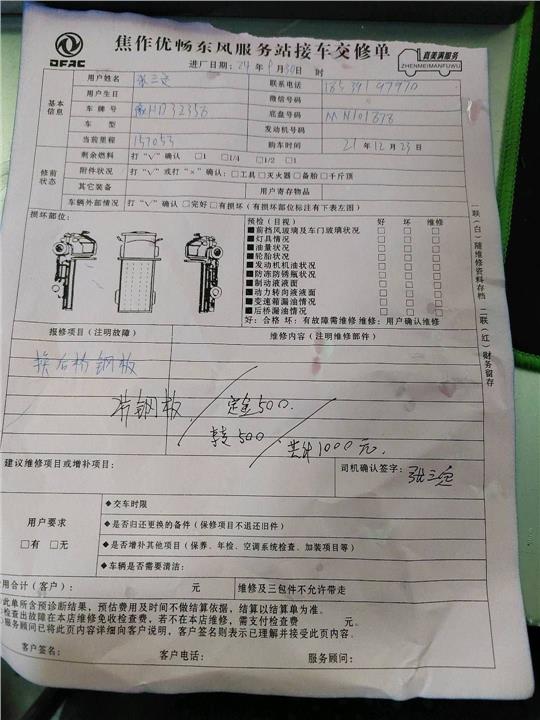 DFAC
焦作优畅东风服务站接车交修单
真美满服务
ZHENMEIMANFUWU
进厂日期：24年 月30日 时
基本信息
用户姓名 张三 联系电话
用户生日 微信号码
车牌号 豫HD32358 底盘号码 MN101878
车型 发动机号码
当前里程 157053 购车时间 21年12月23日
修前状态
剩余燃料 打“V”确认 □1 □1/4 □1/2 □1
附件状况 打“V”或打“×”确认：□工具 □灭火器 □备胎 □千斤顶
其它装备 用户寄存物品
车辆外部情况 打“V”确认 □完好 □有损坏（有损坏部位标注有下表左图）
损坏部位：
预检（目视） 好 坏 维修
■前挡风玻璃及车门玻璃状况 □ □ □
■灯具情况 □ □ □
■油量状况 □ □ □
■轮胎状况 □ □ □
■发动机机油状况 □ □ □
■防冻防锈瓶状况 □ □ □
■制动液液面 □ □ □
■动力转向液液面 □ □ □
■变速箱漏油情况 □ □ □
■后桥漏油情况 □ □ □
好：合格 坏：有故障需维修 维修：用户确认维修
报修项目（注明故障） 维修内容（注明维修部件）
换后桥钢板
带钢板 定金500.
转500 共计1000元.
建议维修项目或增补项目：
司机确认签字：张三
用户要求
□有 □无
◆交车时限
◆是否归还更换的备件（保修项目不退还旧件）
◆是否增补其他项目（保养、年检、空调系统检查、加装项目等）
◆车辆是否需要清洁：
用合计（客户）： 元 维修及三包件不允许带走
此单所含预诊断结果，预估费用及时间不做结算依据，结算以结算单为准。
检查出故障在本店维修免收检查费，若不在本店维修，需支付检查费 元。
服务顾问已将此页内容详细向客户说明，客户签名则表示已理解并接受此页内容。
客户签名： 客户电话： 服务顾问：
一联（白）随维修资料存档 二联（红）财务留存